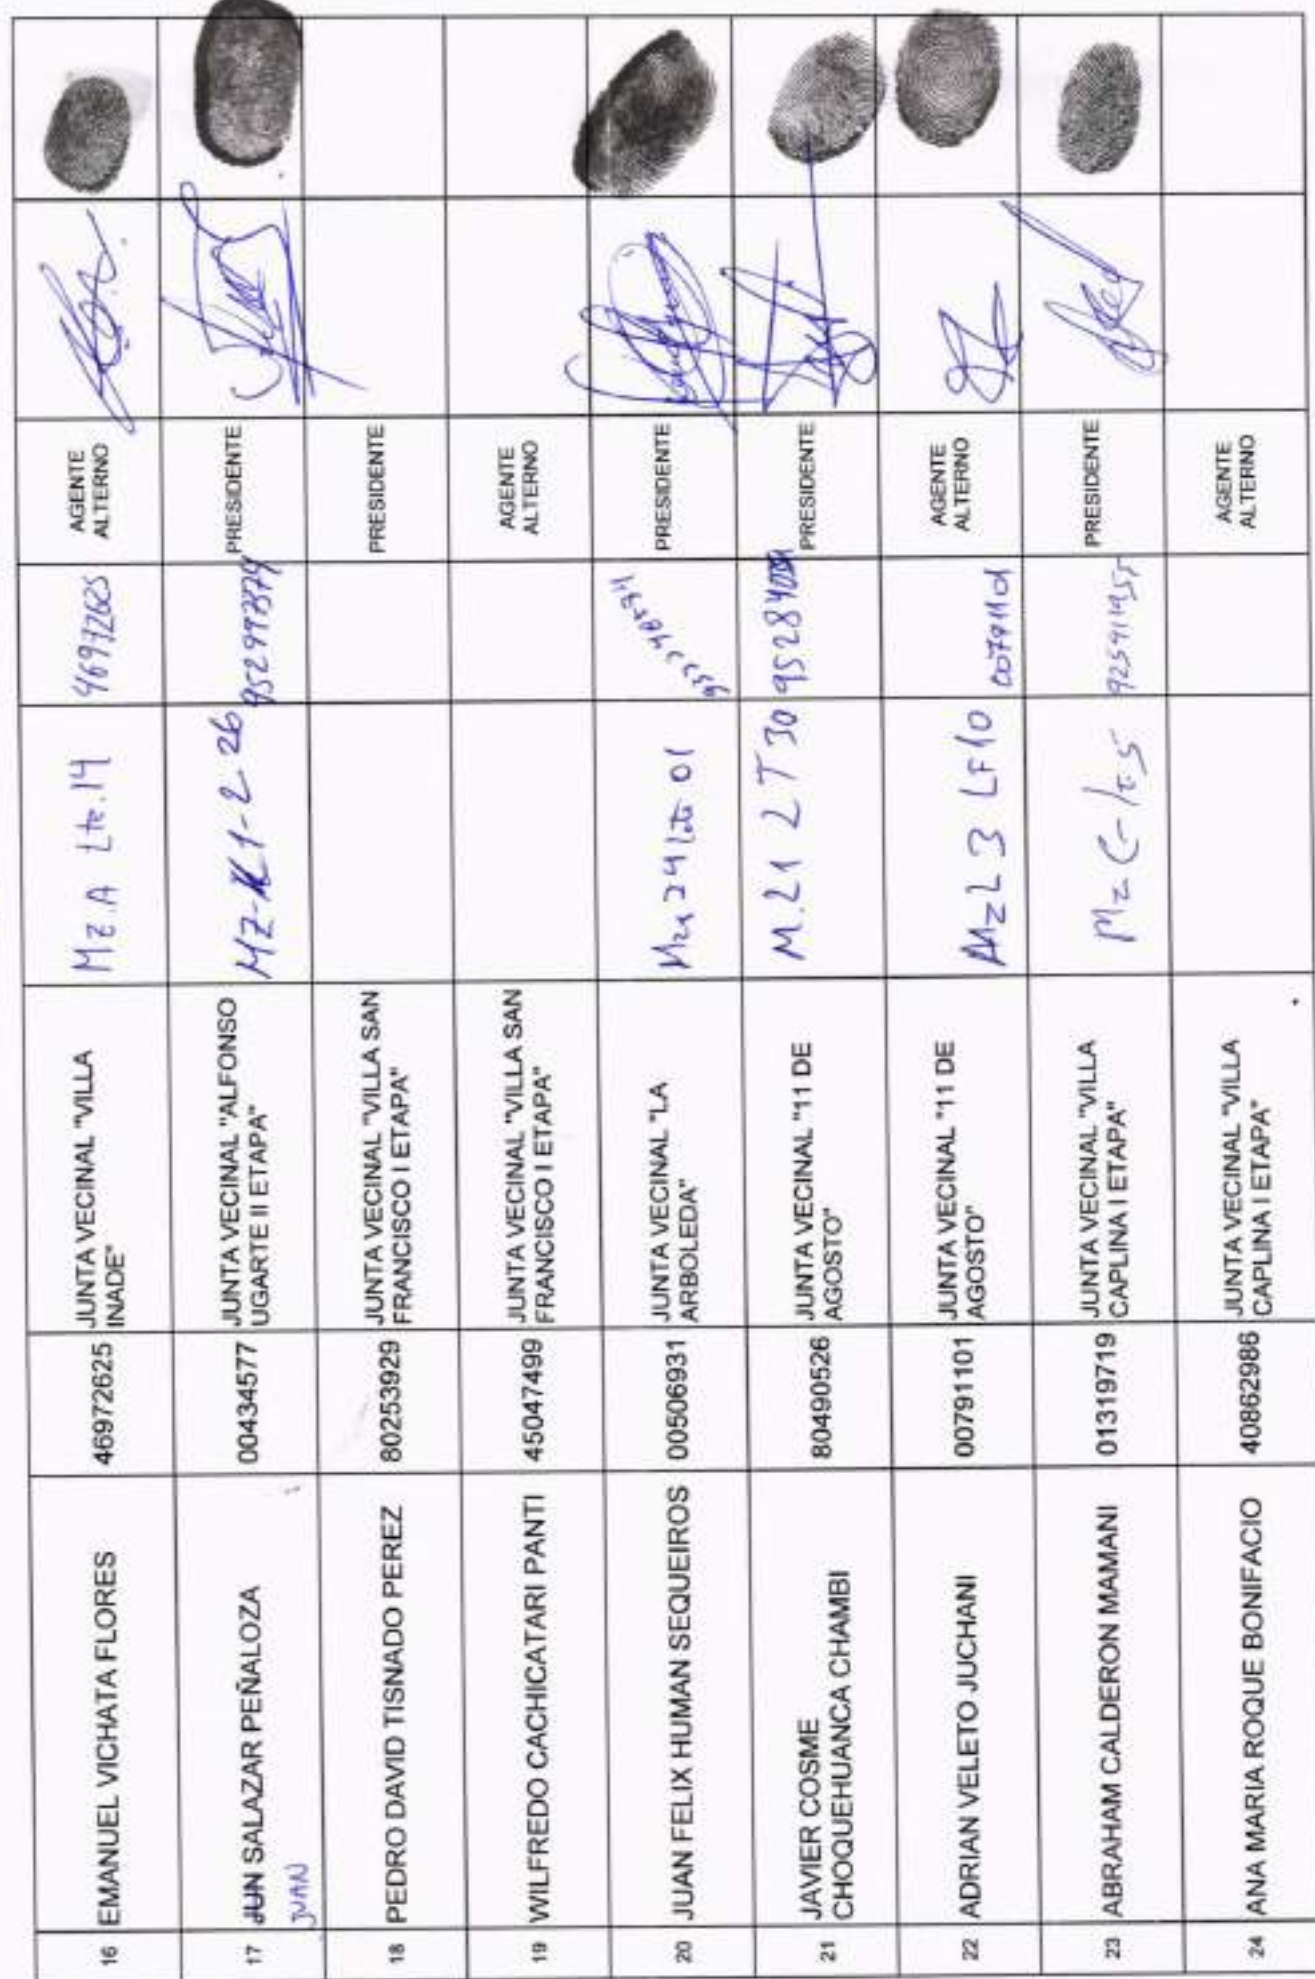 16 EMANUEL VICHATA FLORES 46972625 JUNTA VECINAL "VILLA
INADE" Mz.A Lte.14 46972625 AGENTE
ALTERNO
17 JUN SALAZAR PEÑALOZA 00434577 JUNTA VECINAL "ALFONSO
UGARTE II ETAPA" PRESIDENTE
JUAN
18 PEDRO DAVID TISNADO PEREZ 80253929 JUNTA VECINAL "VILLA SAN
FRANCISCO I ETAPA" PRESIDENTE
19 WILFREDO CACHICATARI PANTI 45047499 JUNTA VECINAL "VILLA SAN
FRANCISCO I ETAPA" AGENTE
ALTERNO
20 JUAN FELIX HUMAN SEQUEIROS 00506931 JUNTA VECINAL "LA
ARBOLEDA" PRESIDENTE
21 JAVIER COSME
CHOQUEHUANCA CHAMBI 80490526 JUNTA VECINAL "11 DE
AGOSTO" M.21 LT 30 PRESIDENTE
22 ADRIAN VELETO JUCHANI 00791101 JUNTA VECINAL "11 DE
AGOSTO" AGENTE
ALTERNO
23 ABRAHAM CALDERON MAMANI 01319719 JUNTA VECINAL "VILLA
CAPLINA I ETAPA" PRESIDENTE
24 ANA MARIA ROQUE BONIFACIO 40862986 JUNTA VECINAL "VILLA
CAPLINA I ETAPA" AGENTE
ALTERNO